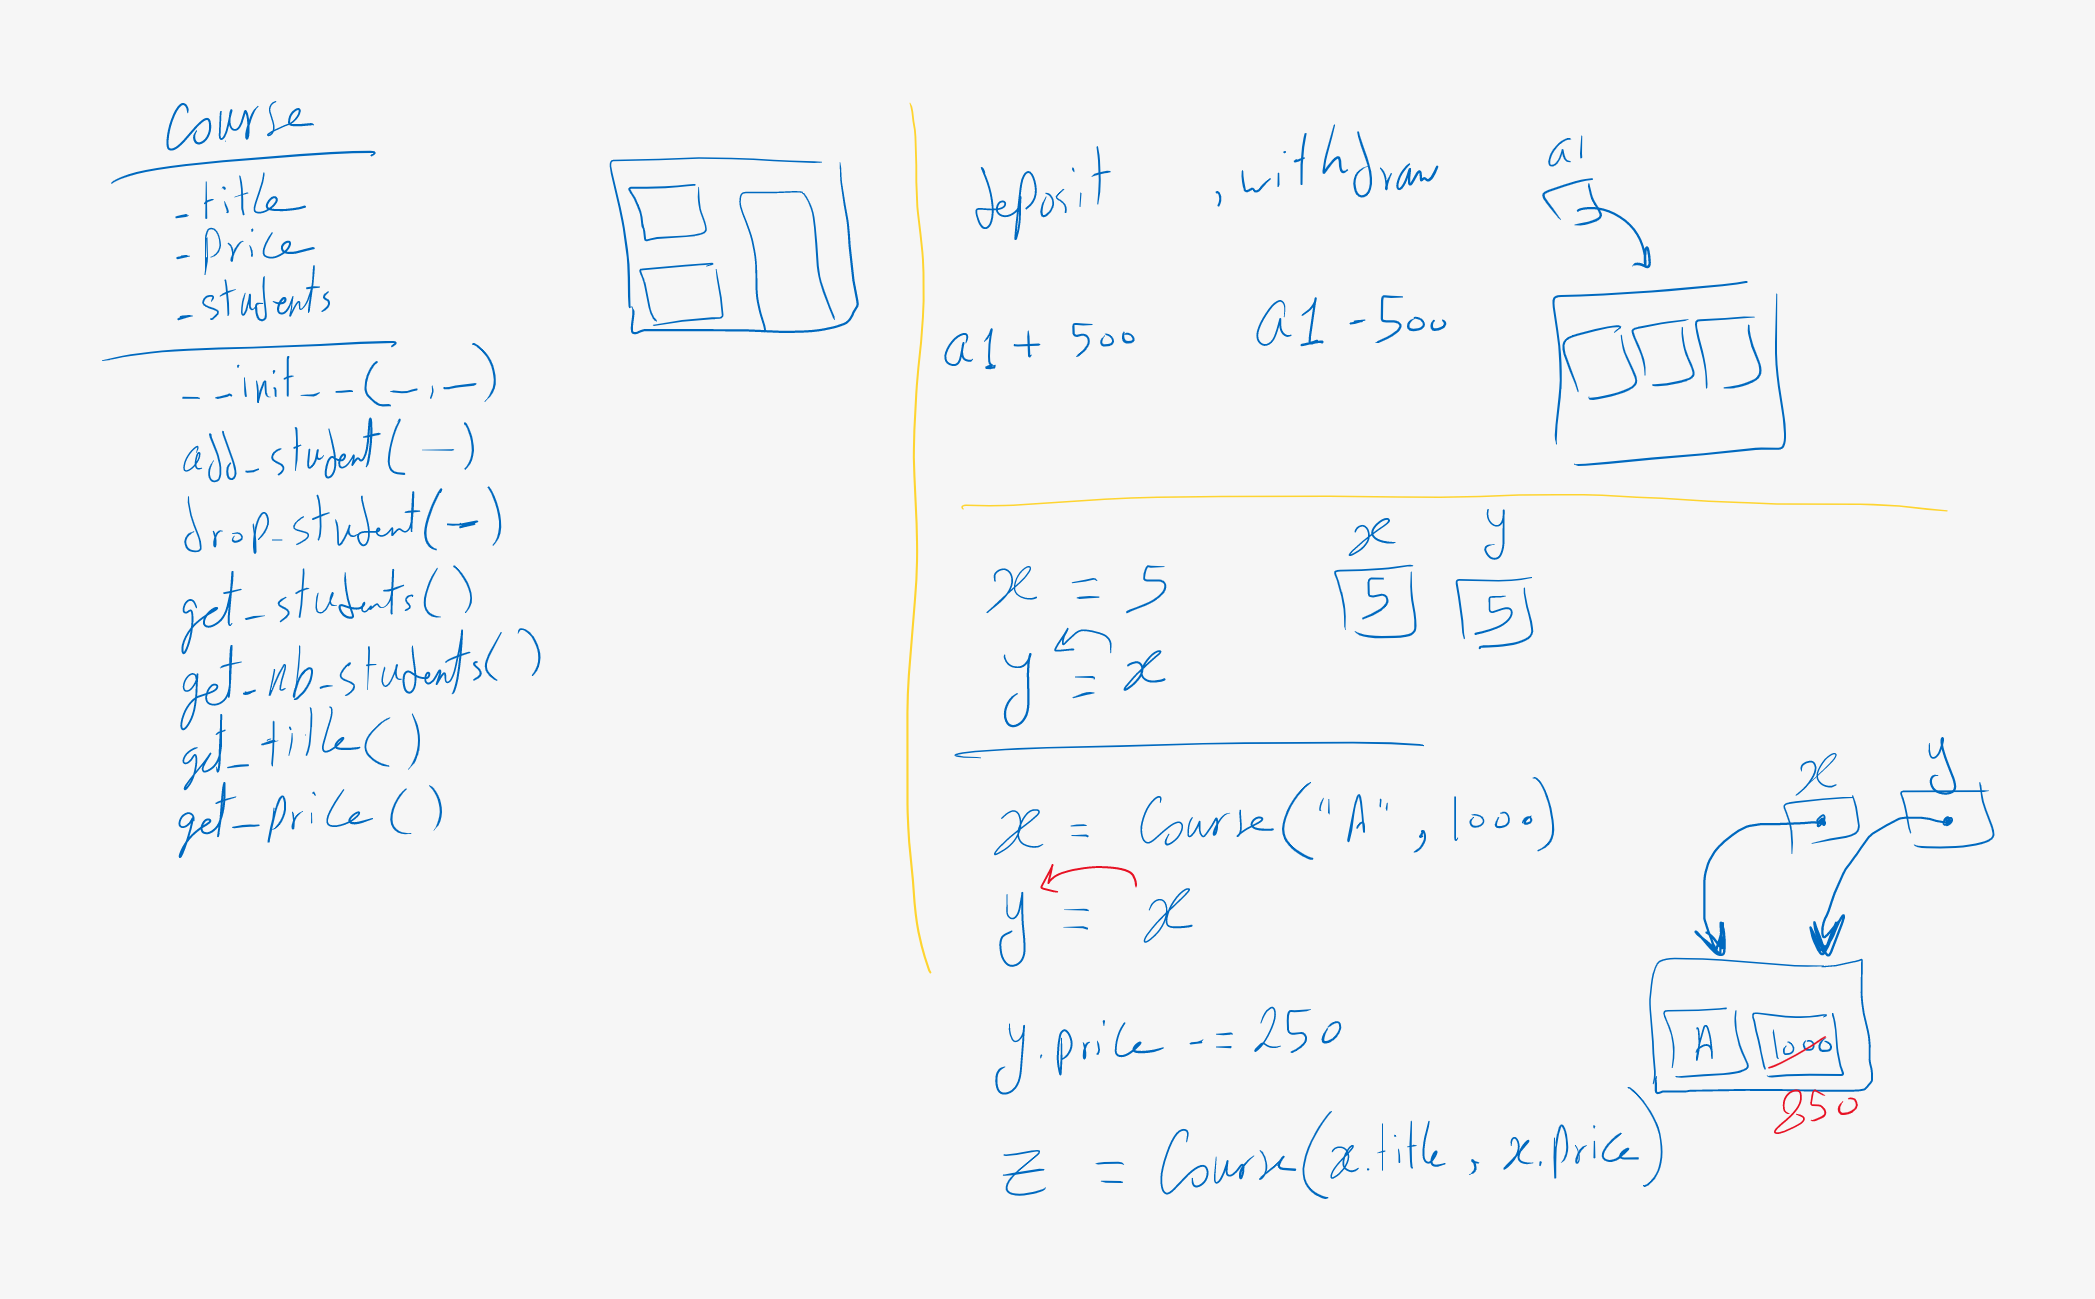 Course
- title
- Price
- students
--init--(-,-)
add_student(-)
drop_student(-)
get_students()
get_nb_students()
get_title()
get_price()
deposit , withdraw
a1
a1 + 500
a1 - 500
x = 5
y = x
x y
5 5
x = Course("A", 1000)
y = x
y.price -= 250
z = Course(x.title, x.price)
x y
A 1000
850